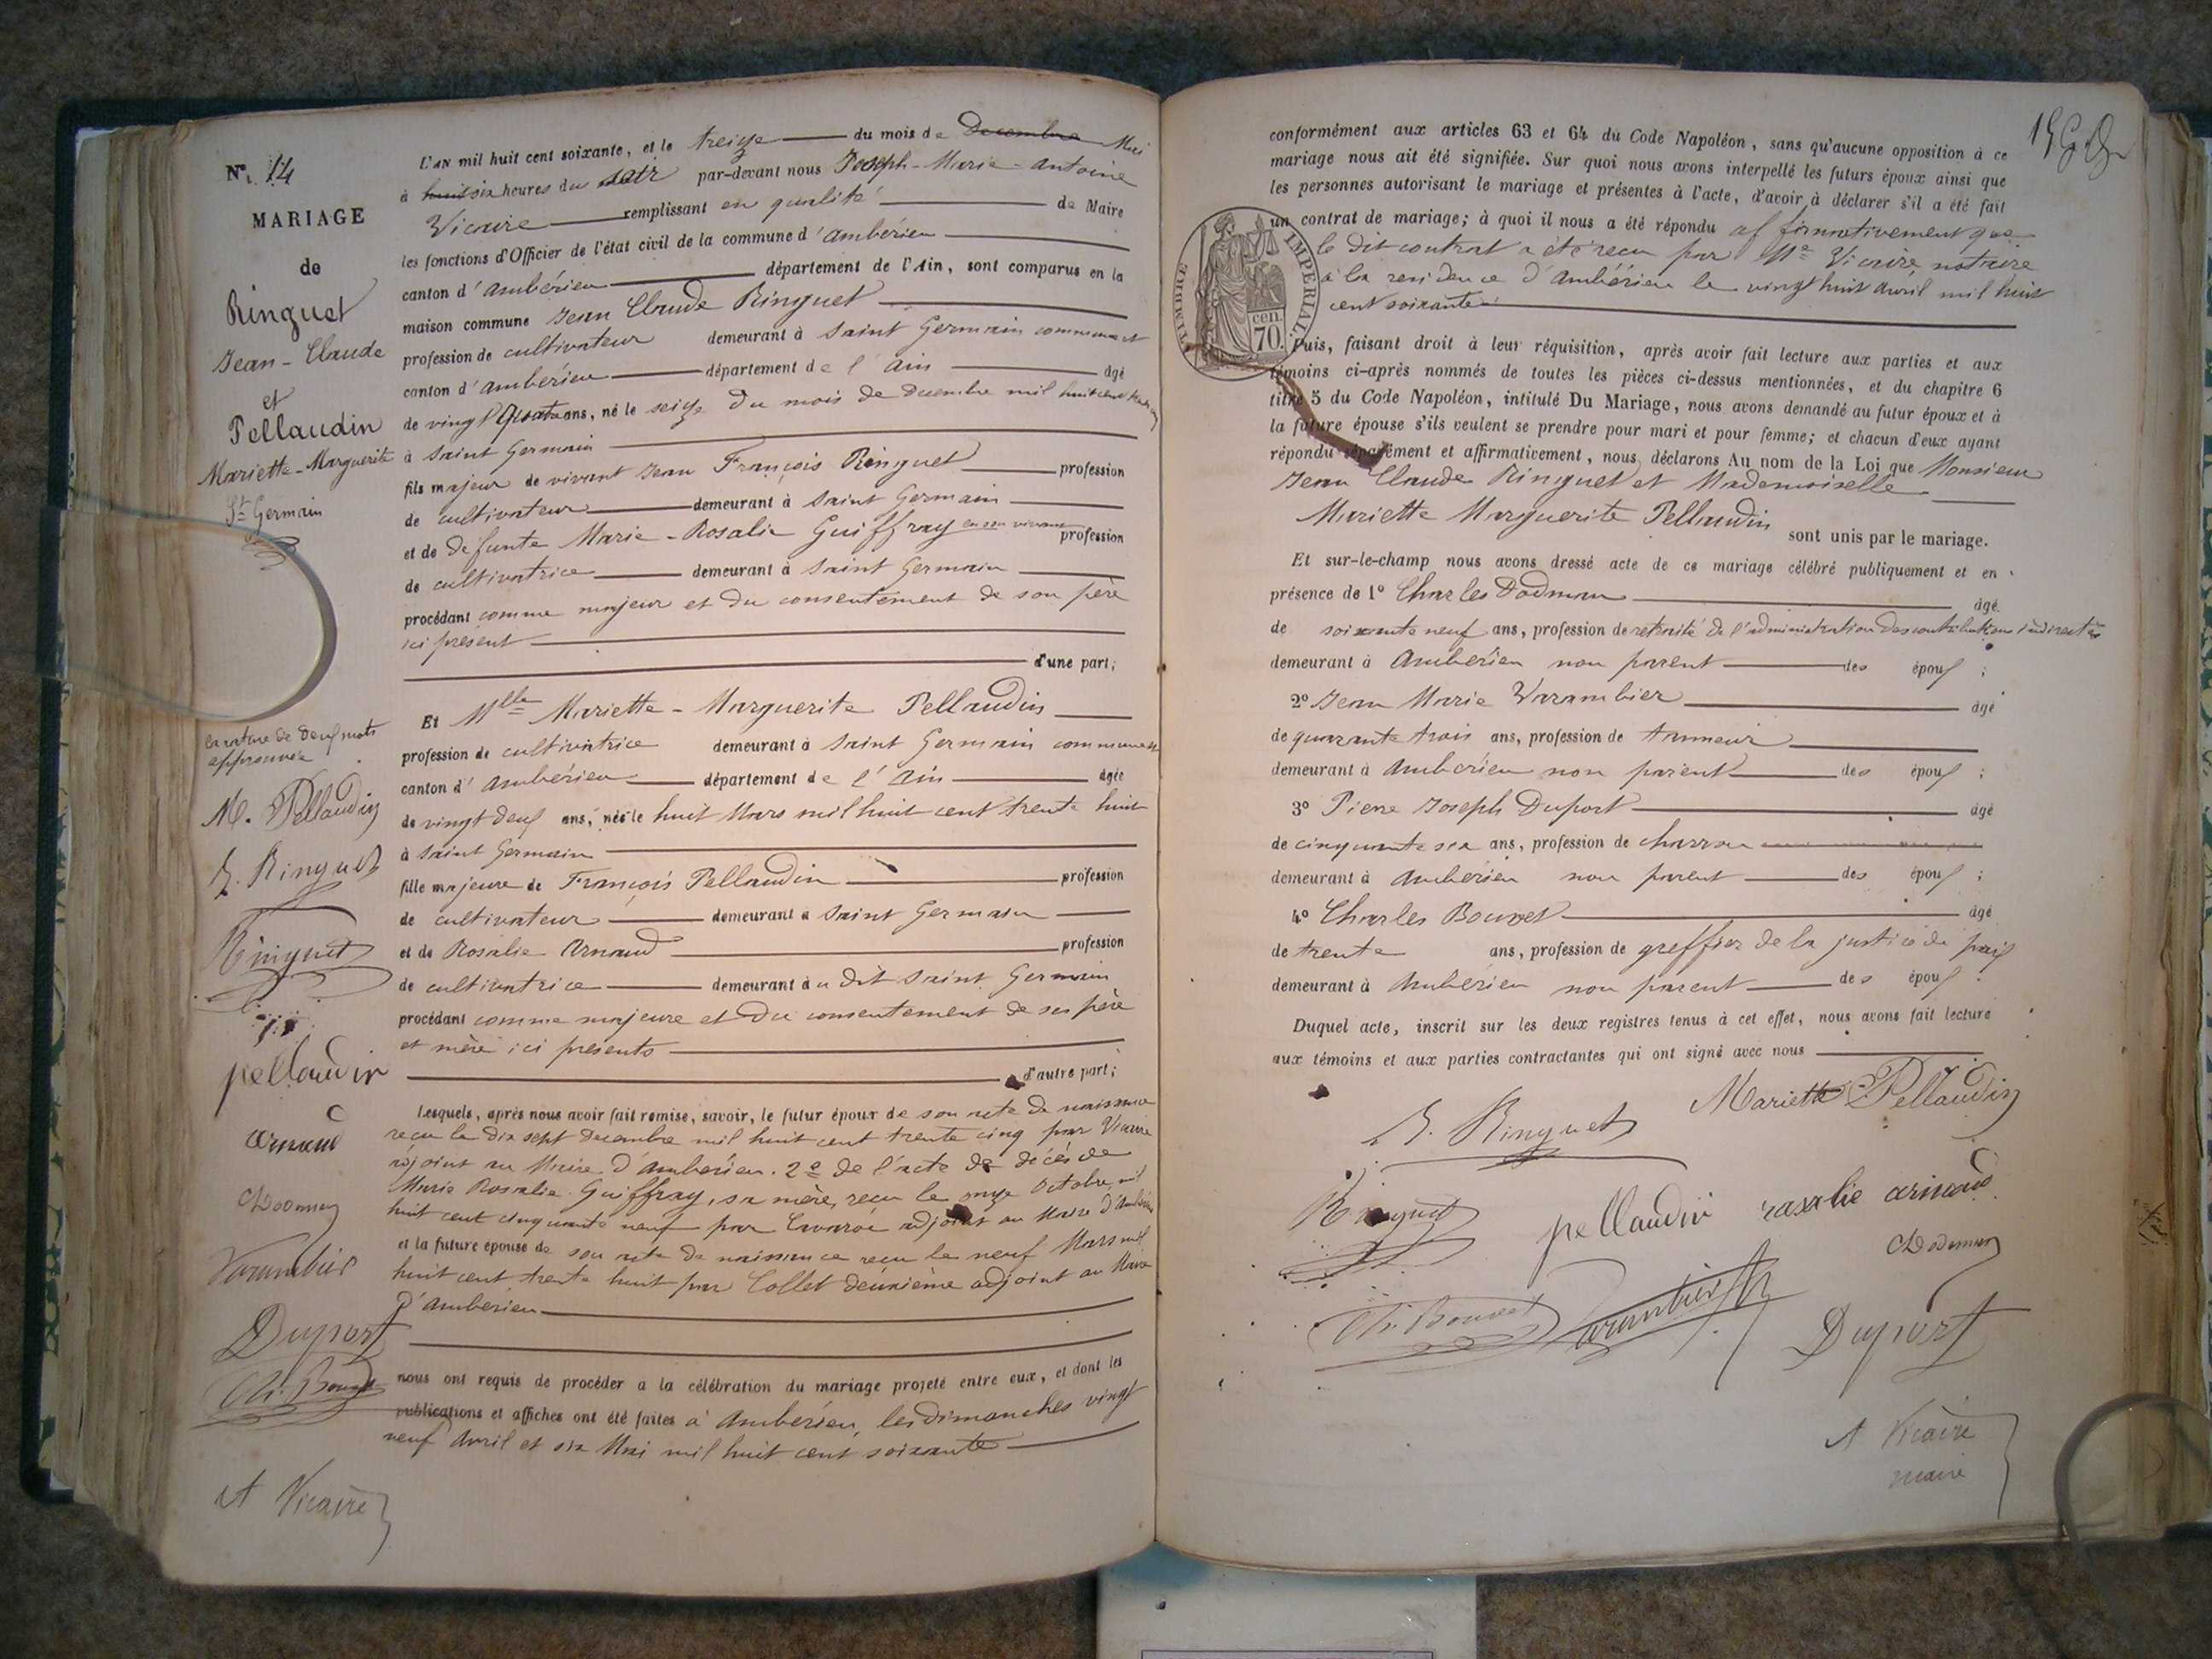 N°. 14
MARIAGE
de
Ringuet
Jean-Claude
et
Pellaudin
Mariette-Marguerite
St Germain
la rature de deux mots
approuvée
M. Pellaudin
J. Ringuet
Ringuet
pellaudin
arnaud
CDodman
Varambier
Duport
Ch. Bouvet
A Vicaire
L'AN mil huit cent soixante, et le treize du mois de Decembre Mai
à huit six heures du soir par-devant nous Joseph-Marie-Antoine
Vicaire remplissant en qualité de Maire
les fonctions d'Officier de l'état civil de la commune d'Ambérieu
canton d'Ambérieu département de l'Ain, sont comparus en la
maison commune Jean Claude Ringuet
profession de cultivateur demeurant à Saint Germain commune et
canton d'Ambérieu département de l'Ain âgé
de vingt quatre ans, né le seize du mois de Decembre mil huit cent
à Saint Germain
fils majeur de vivant Jean François Ringuet profession
de cultivateur demeurant à Saint Germain
et de defunte Marie-Rosalie Guiffray en son vivant profession
de cultivatrice demeurant à Saint Germain
procédant comme majeur et du consentement de son père
ici présent
d'une part;
Et Mlle Mariette-Marguerite Pellaudin
profession de cultivatrice demeurant à Saint Germain commune et
canton d'Ambérieu département de l'Ain âgée
de vingt deux ans, née le huit Mars mil huit cent trente huit
à Saint Germain
fille majeure de François Pellaudin profession
de cultivateur demeurant à Saint Germain
et de Rosalie Arnaud profession
de cultivatrice demeurant au dit Saint Germain
procédant comme majeure et du consentement de ses père
et mère ici présents
d'autre part;
Lesquels, après nous avoir fait remise, savoir, le futur époux de son acte de naissance
reçu le dix sept Decembre mil huit cent trente cinq par Vicaire
adjoint au Maire d'Ambérieu. 2e de l'acte de décès de
Marie Rosalie Guiffray, sa mère, reçu le onze Octobre mil
huit cent cinquante neuf par adjoint au Maire d'Ambérieu
et la future épouse de son acte de naissance reçu le neuf Mars mil
huit cent trente huit par Collet deuxième adjoint au Maire
d'Ambérieu
nous ont requis de procéder a la célébration du mariage projeté entre eux, et dont les
publications et affiches ont été faites à Ambérieu, les dimanches vingt
neuf Avril et six Mai mil huit cent soixante
conformément aux articles 63 et 64 du Code Napoléon, sans qu'aucune opposition à ce
mariage nous ait été signifiée. Sur quoi nous avons interpellé les futurs époux ainsi que
les personnes autorisant le mariage et présentes à l'acte, d'avoir à déclarer s'il a été fait
un contrat de mariage; à quoi il nous a été répondu affirmativement que
le dit contrat a été reçu par Me Vicaire notaire
à la residence d'Ambérieu le vingt huit Avril mil huit
cent soixante
TIMBRE IMPERIAL.
cen.
70.
Puis, faisant droit à leur réquisition, après avoir fait lecture aux parties et aux
témoins ci-après nommés de toutes les pièces ci-dessus mentionnées, et du chapitre 6
titre 5 du Code Napoléon, intitulé Du Mariage, nous avons demandé au futur époux et à
la future épouse s'ils veulent se prendre pour mari et pour femme; et chacun d'eux ayant
répondu séparément et affirmativement, nous déclarons Au nom de la Loi que Monsieur
Jean Claude Ringuet et Mademoiselle
Mariette Marguerite Pellaudin
sont unis par le mariage.
Et sur-le-champ nous avons dressé acte de ce mariage célébré publiquement et en
présence de 1° Charles Dodman âgé
de soixante neuf ans, profession de retraité de l'administration des contributions indirectes
demeurant à Ambérieu non parent des époux;
2° Jean Marie Varambier âgé
de quarante trois ans, profession de tanneur
demeurant à Ambérieu non parent des époux;
3° Pierre Joseph Duport âgé
de cinquante six ans, profession de charron
demeurant à Ambérieu non parent des époux;
4° Charles Bouvet âgé
de trente ans, profession de greffier de la justice de paix
demeurant à Ambérieu non parent des époux.
Duquel acte, inscrit sur les deux registres tenus à cet effet, nous avons fait lecture
aux témoins et aux parties contractantes qui ont signé avec nous
J. Ringuet Mariette Pellaudin
Ringuet pellaudin rosalie arnaud
CDodman
Ch. Bouvet Varambier Duport
A Vicaire
maire